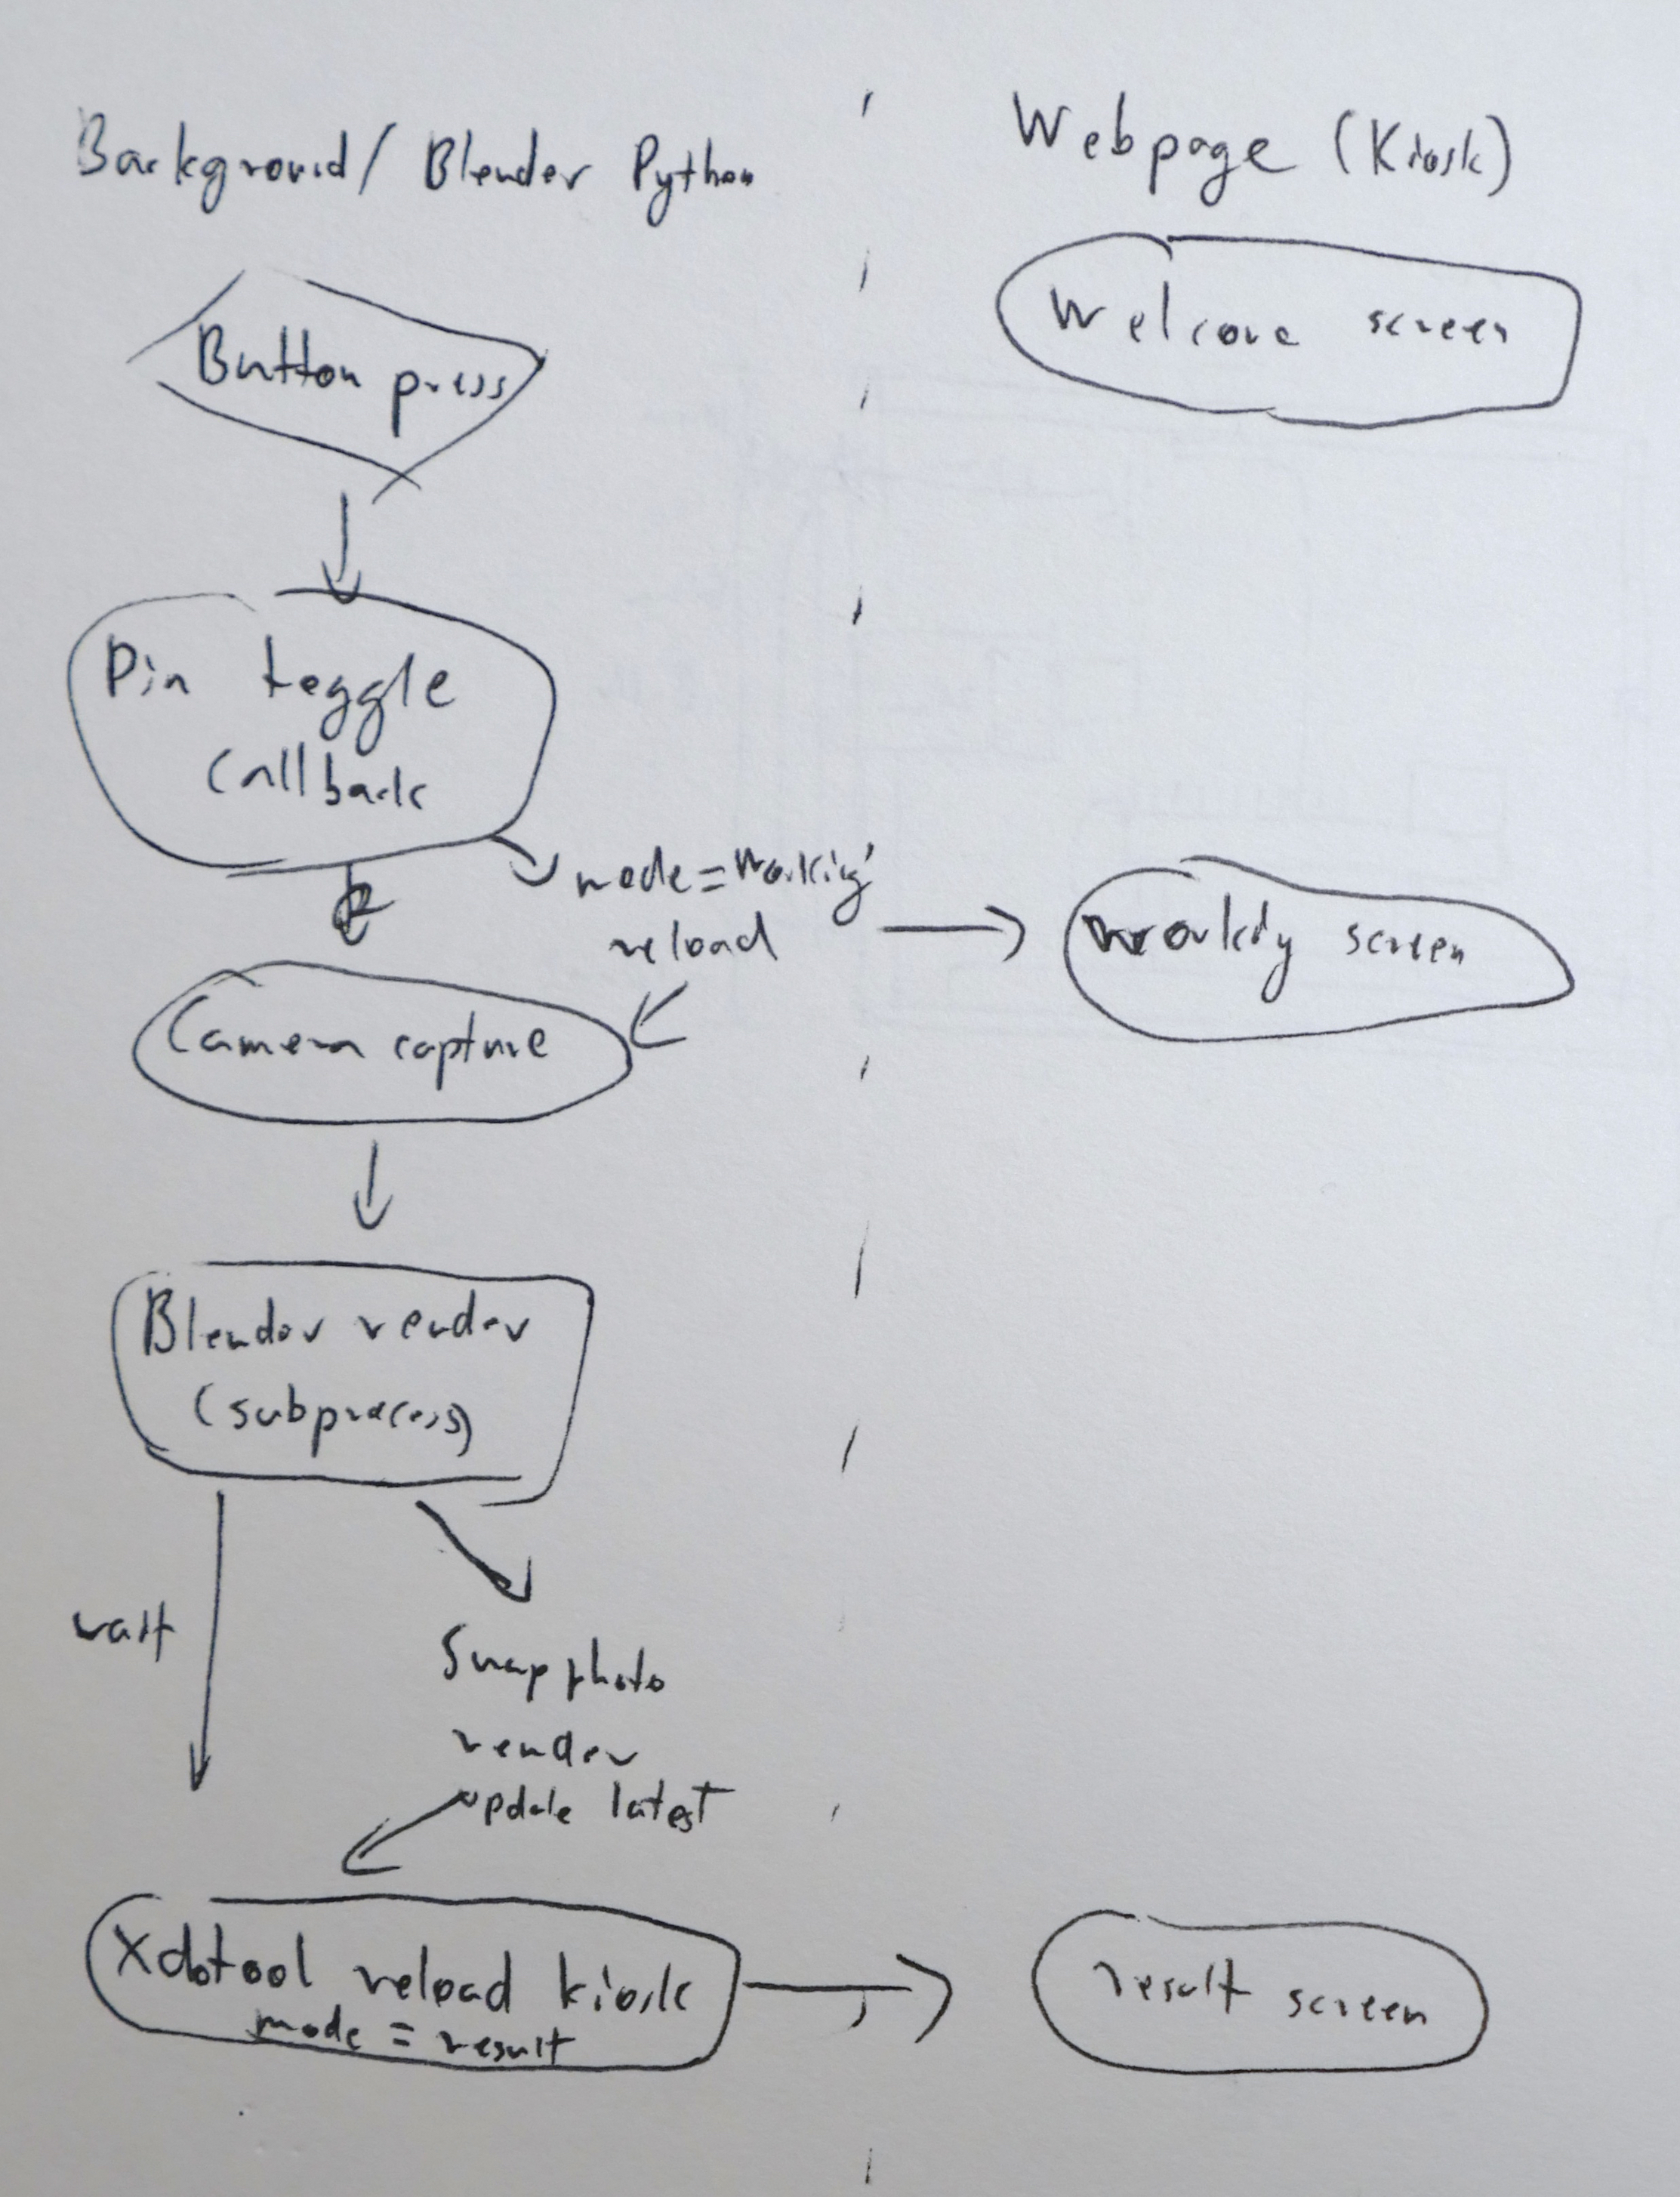 Background / Blender Python
Webpage (Kiosk)
Button press
Welcome screen
Pin toggle
Callback
mode = working
reload
working screen
Camera capture
Blender render
(subprocess)
wait
Snap photo
render
update latest
Xdotool reload kiosk
mode = result
result screen